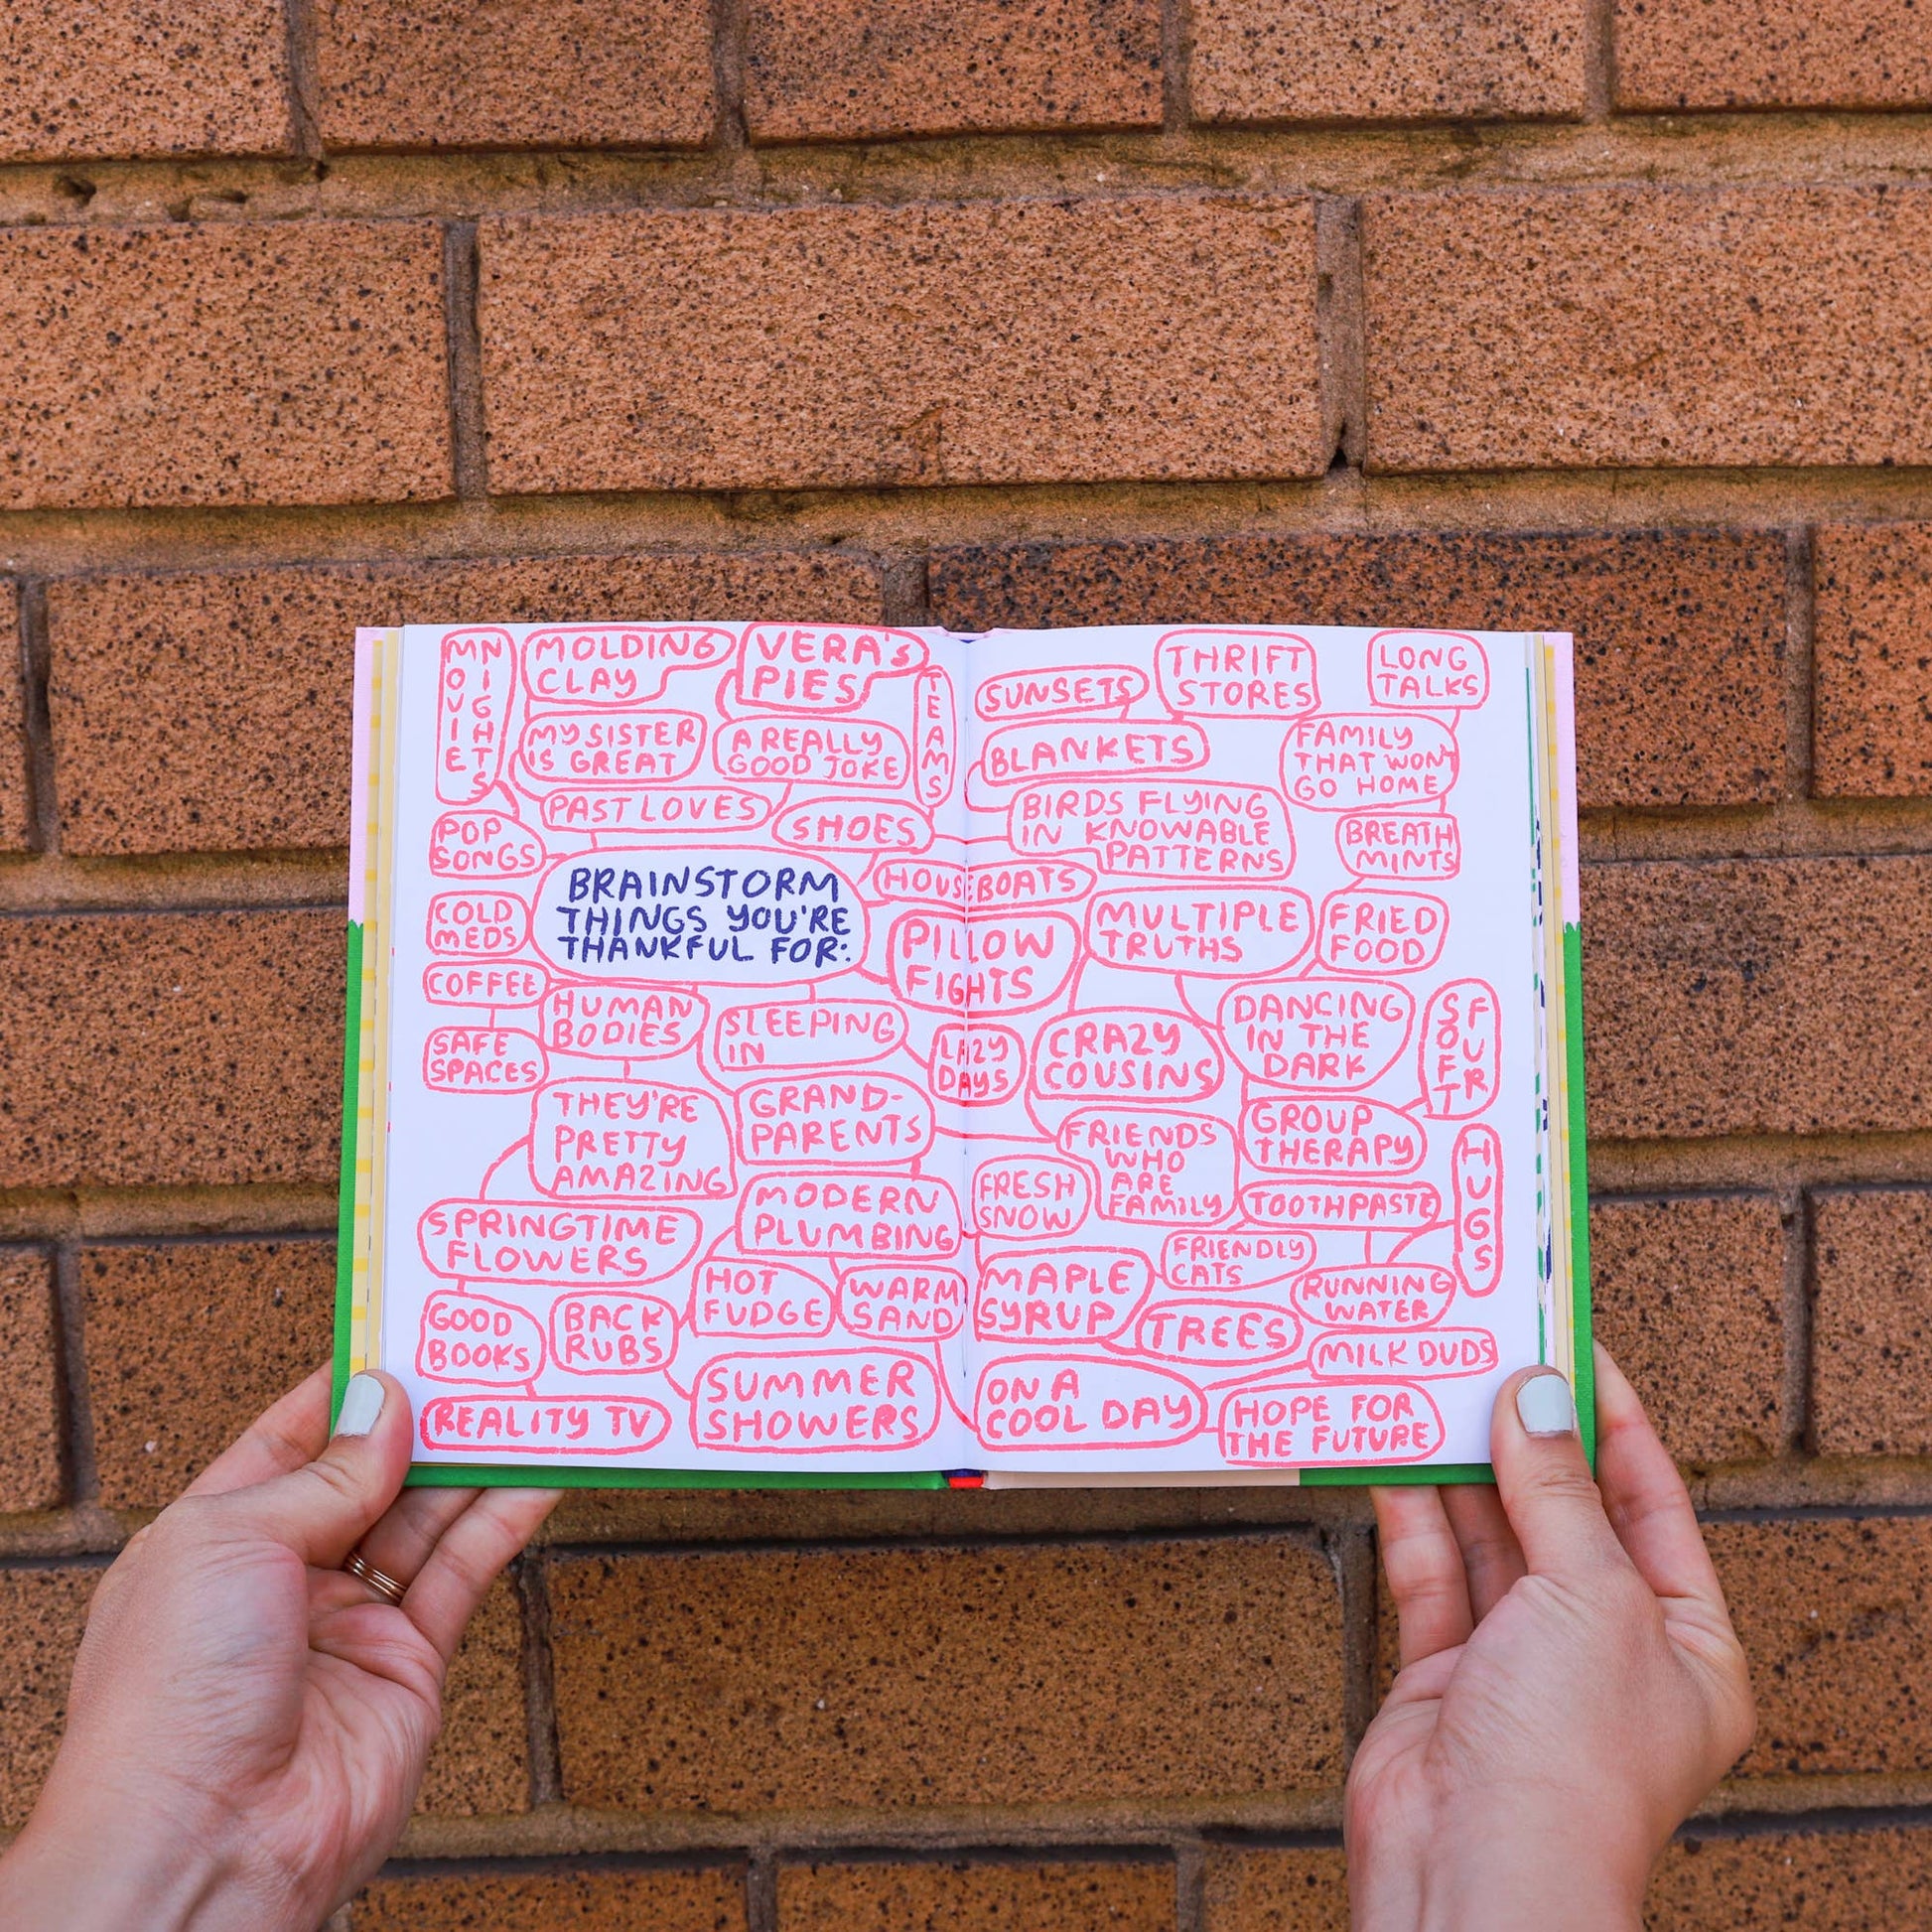 MOVIE
NIGHTS
MOLDING
CLAY
VERA'S
PIES
TEAMS
MY SISTER
IS GREAT
A REALLY
GOOD JOKE
PAST LOVES
SHOES
POP
SONGS
BRAINSTORM
THINGS YOU'RE
THANKFUL FOR:
HOUSEBOATS
COLD
MEDS
PILLOW
FIGHTS
COFFEE
HUMAN
BODIES
SLEEPING
IN
SAFE
SPACES
LAZY
DAYS
THEY'RE
PRETTY
AMAZING
GRAND-
PARENTS
SPRINGTIME
FLOWERS
MODERN
PLUMBING
HOT
FUDGE
WARM
SAND
GOOD
BOOKS
BACK
RUBS
REALITY TV
SUMMER
SHOWERS
SUNSETS
THRIFT
STORES
LONG
TALKS
BLANKETS
FAMILY
THAT WON'T
GO HOME
BIRDS FLYING
IN KNOWABLE
PATTERNS
BREATH
MINTS
MULTIPLE
TRUTHS
FRIED
FOOD
CRAZY
COUSINS
DANCING
IN THE
DARK
SOFT
FUR
FRIENDS
WHO
ARE
FAMILY
GROUP
THERAPY
HUGS
FRESH
SNOW
TOOTHPASTE
FRIENDLY
CATS
MAPLE
SYRUP
RUNNING
WATER
TREES
MILK DUDS
ON A
COOL DAY
HOPE FOR
THE FUTURE